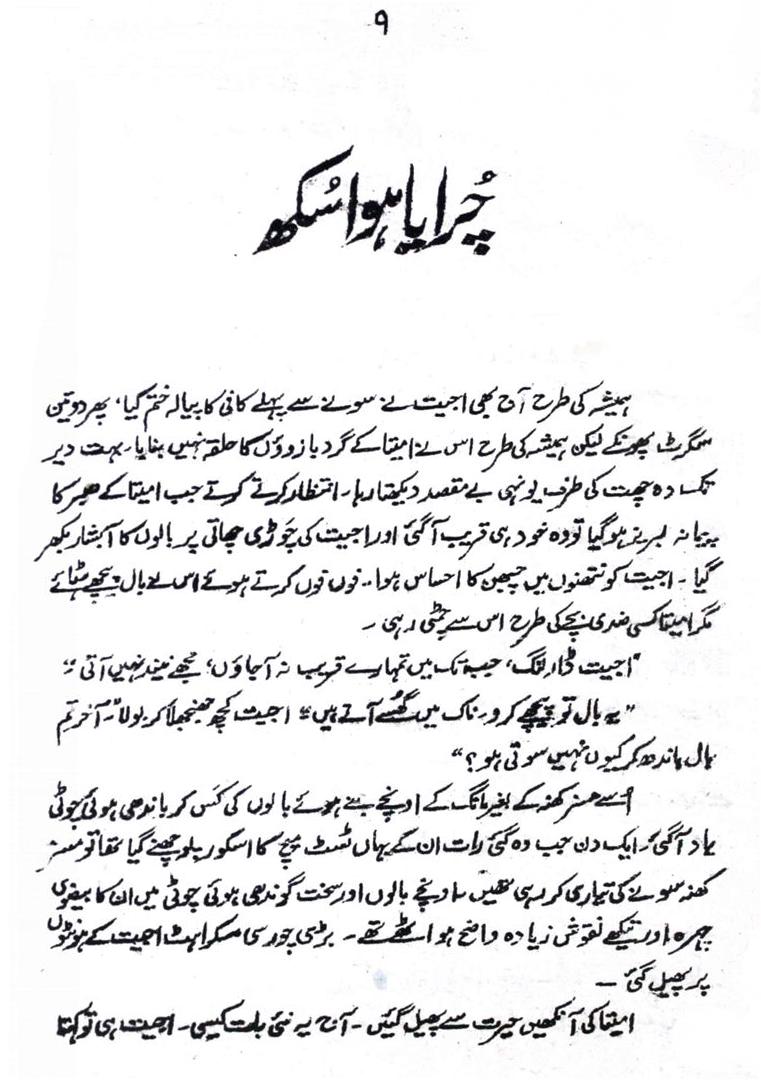 ۹
چُرایا ہوا سُکھ
ہمیشہ کی طرح آج بھی اجیت نے سونے سے پہلے کافی کا پیالہ ختم کیا، پھر دو تین
سگرٹ پھونکے لیکن ہمیشہ کی طرح اس نے امیتا کے گرد بازوؤں کا حلقہ نہیں بنایا۔ بہت دیر
تک وہ چھت کی طرف یونہی بے مقصد دیکھتا رہا۔ انتظار کرتے کرتے جب امیتا کے صبر کا
پیمانہ لبریز ہو گیا تو وہ خود ہی قریب آ گئی اور اجیت کی چَوڑی چھاتی پر بالوں کا آبشار بکھر
گیا۔ اجیت کو نتھنوں میں چبھن کا احساس ہوا۔۔ فوں فوں کرتے ہوئے اس نے بال پیچھے ہٹائے
مگر امیتا کسی ضدی بچے کی طرح اس سے چمٹی رہی۔
"اجیت ڈارلنگ، جب تک میں تمہارے قریب نہ آ جاؤں، مجھے نیند نہیں آتی۔"
"یہ بال تو پیچھے کرو۔ ناک میں گھُسے آتے ہیں" اجیت کچھ جھنجھلا کر بولا "۔ آخر تم
بال باندھ کر کیوں نہیں سوتی ہو؟"
اُسے مسز کھنہ کے بغیر مانگ کے اونچے بنے ہوئے بالوں کی کَس کر باندھی ہوئی چوٹی
یاد آ گئی۔ ایک دن جب وہ گئی رات ان کے یہاں ٹسٹ میچ کا اسکور پوچھنے گیا تھا تو مسز
کھنہ سونے کی تیاری کر رہی تھیں۔ اونچے بالوں اور سخت گوندھی ہوئی چوٹی میں ان کا بیضوی
چہرہ اور تیکھے نقوش زیادہ واضح ہو اٹھے تھے۔ بڑی چور سی مسکراہٹ اجیت کے ہونٹوں
پر پھیل گئی —
امیتا کی آنکھیں حیرت سے پھیل گئیں۔ آج یہ نئی بات کیسی۔ اجیت ہی تو کہتا